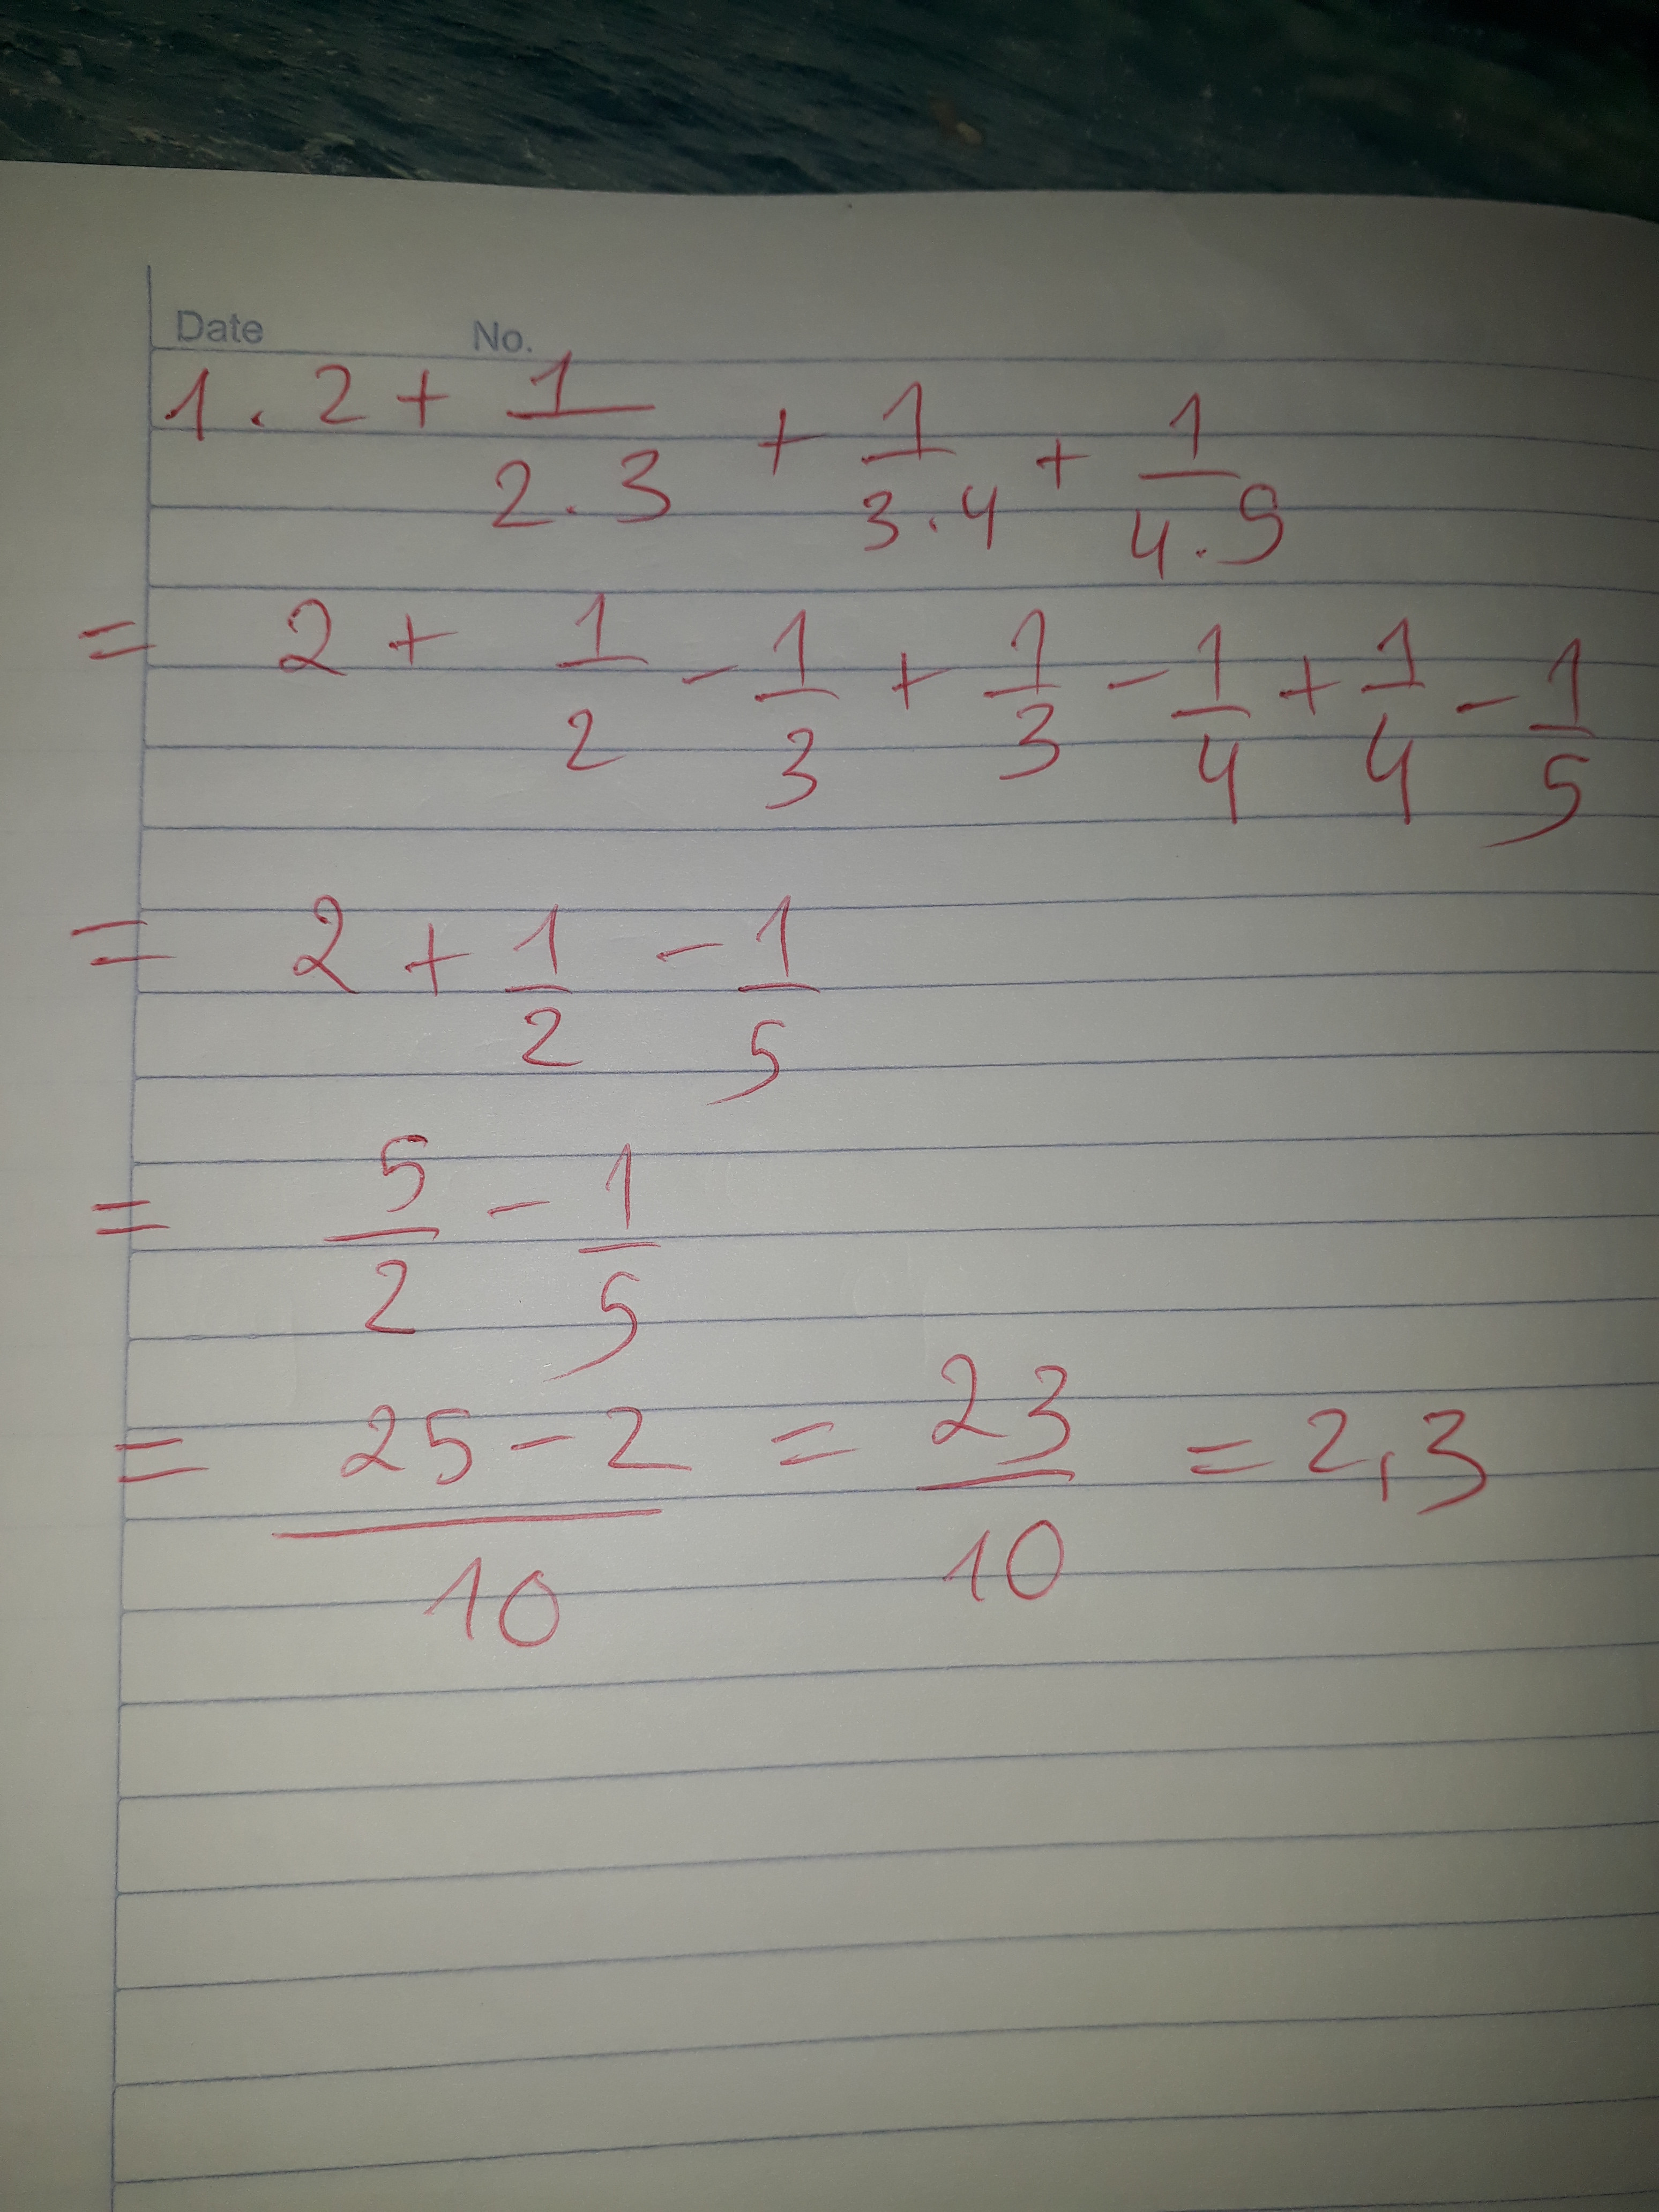 Date No.
1 . 2 + 1/(2 . 3) + 1/(3 . 4) + 1/(4 . 5)
= 2 + 1/2 - 1/3 + 1/3 - 1/4 + 1/4 - 1/5
= 2 + 1/2 - 1/5
= 5/2 - 1/5
= (25 - 2)/10 = 23/10 = 2,3